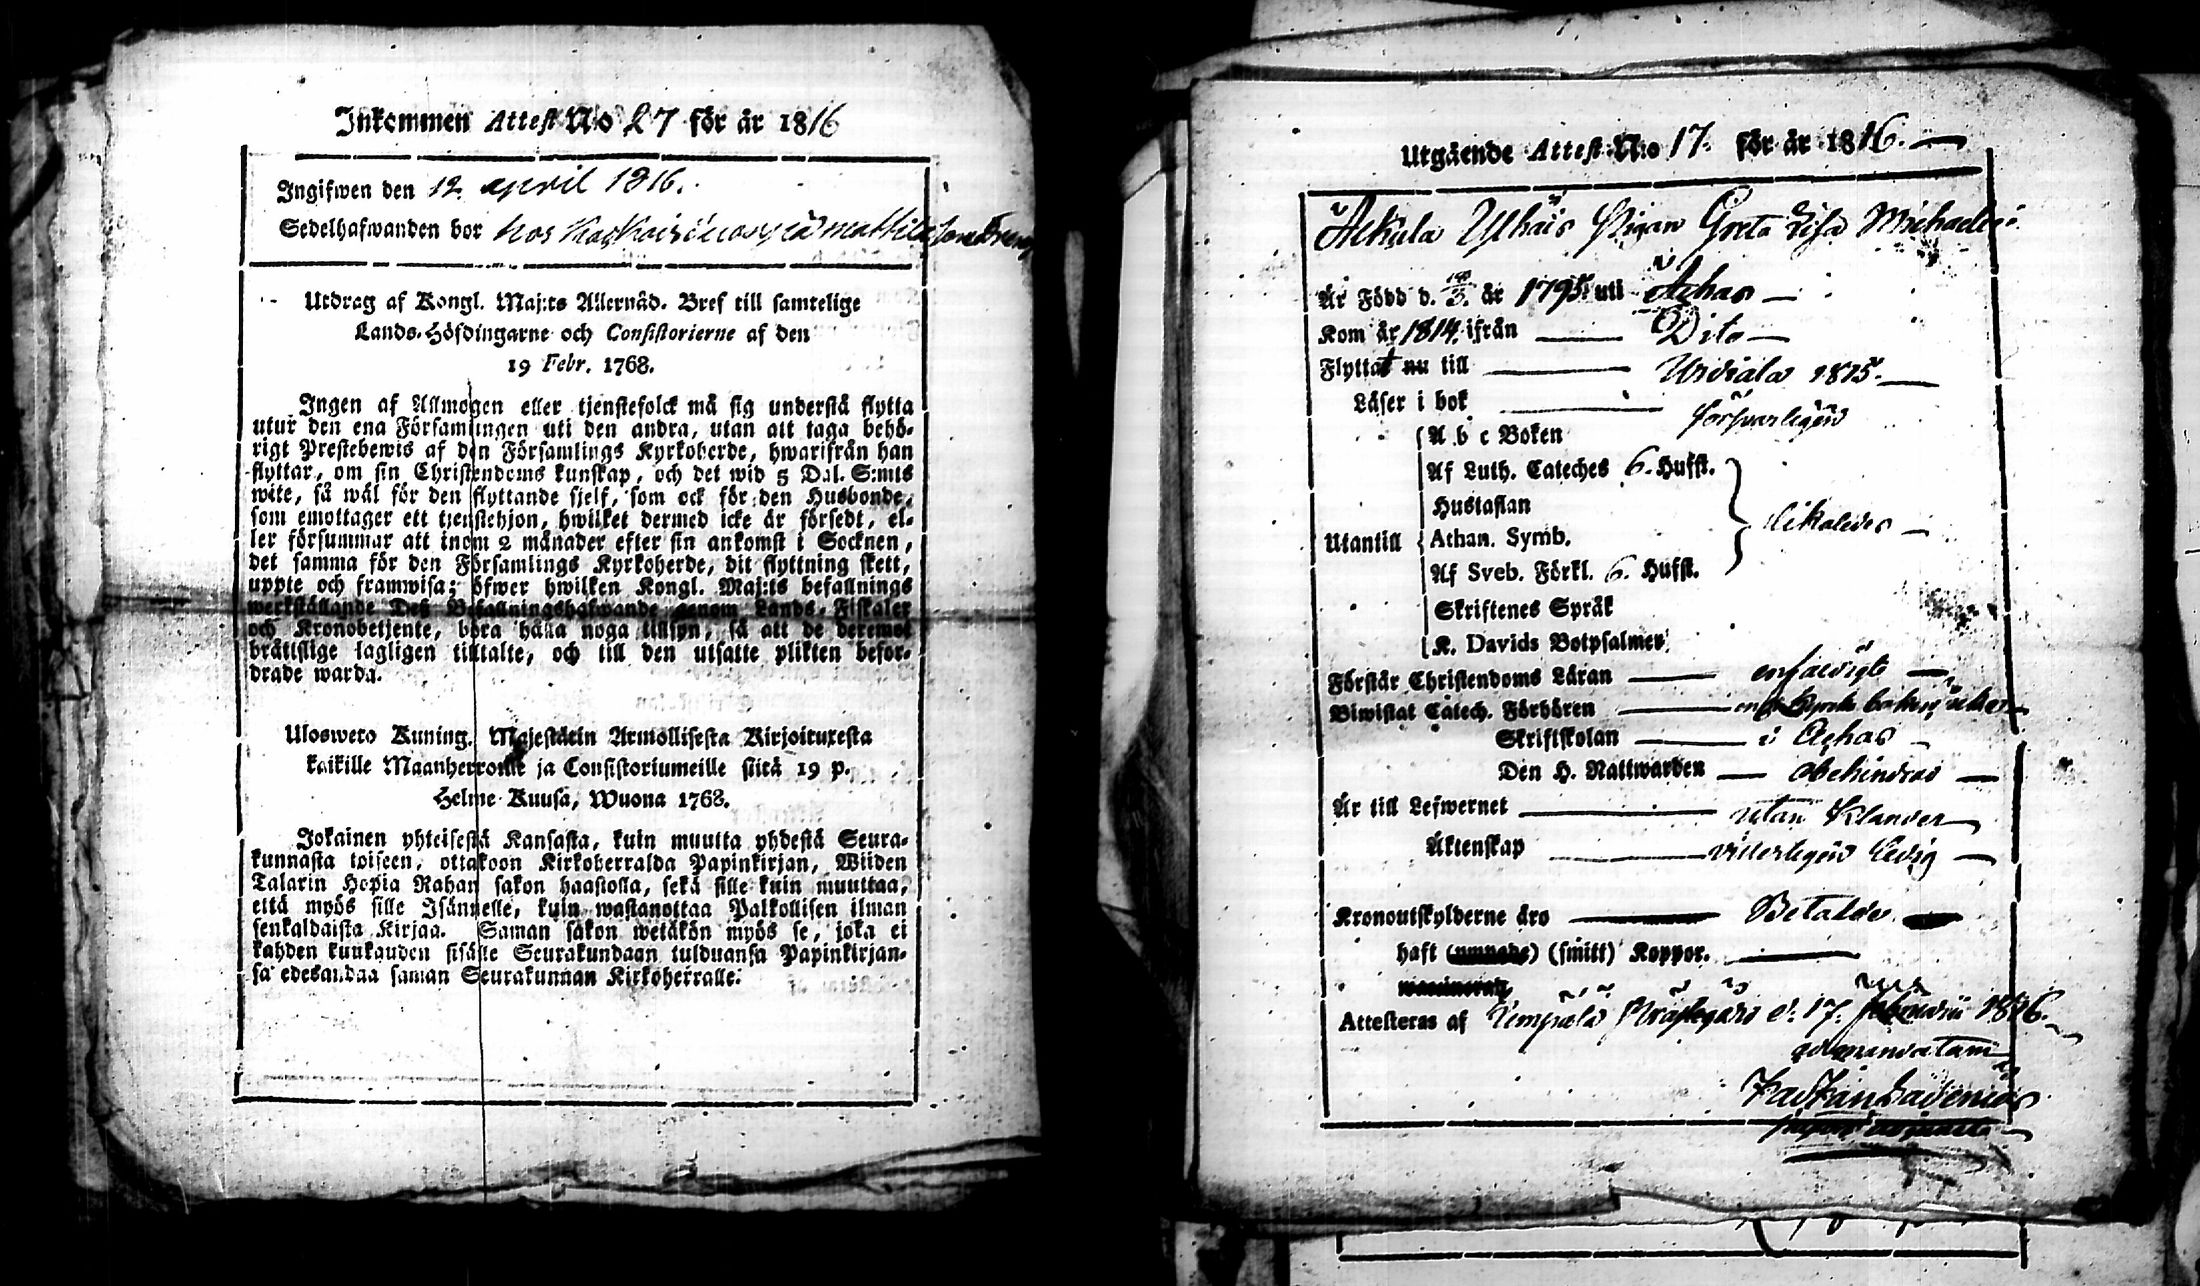 Inkommen Attest No 27 för år 1816
Ingifwen den 12. april 1816.
Sedelhafwanden bor hos
Utdrag af Kongl. Maj:ts Allernåd. Bref till samtelige
Lands-Höfdingarne och Consistorierne af den
19 Febr. 1768.
Ingen af Allmogen eller tjenstefolck må sig understå flytta
utur den ena Församlingen uti den andra, utan att taga behö-
rigt Prestebewis af den Församlings Kyrkoherde, hwarifrån han
flyttar, om sin Christendoms kunskap, och det wid 5 Dal. S:mts
wite, så wäl för den flyttande sjelf, som ock för den Husbonde,
som emottager ett tjenstehjon, hwilket dermed icke är försedt, el-
ler försummar att inom 2 månader efter sin ankomst i Socknen,
det samma för den Församlings Kyrkoherde, dit flyttning skett,
uppte och framwisa; öfwer hwilken Kongl. Maj:ts befallnings
werkställande Deß Befallningshafwande genom Lands-Fiskaler
och Kronobetjente, böra hålla noga tillsyn, så att de deremot
brättslige lagligen tilltalte, och till den utsatte plikten befor-
drade warda.
Ulosweto Kuning. Majestätin Armollisesta Kirjoituxesta
kaikille Maanherroille ja Consistoriumeille siitä 19 p.
Helme-Kuusa, Wuona 1768.
Jokainen yhteisestä Kansasta, kuin muutta yhdestä Seura-
kunnasta toiseen, ottakoon Kirkoherralda Papinkirjan, Wiiden
Talarin Hopia Rahan sakon haastolla, sekä sille kuin muuttaa,
että myös sille Isännelle, kuin wastanottaa Palkollisen ilman
senkaldaista Kirjaa. Saman sakon wetäkön myös se, joka ei
kahden kuukauden sisälle Seurakundaan tulduansa Papinkirjan-
sa edesandaa saman Seurakunnan Kirkoherralle.
Utgående Attest N:o 17. för år 1816.
Pigan Greta Lisa Michaels
Är Född d. år 1795. uti Achas
Kom år 1814. ifrån Dito
Flyttat nu till Urdiala 1815.
Läser i bok försvarligen
A b c Boken
Af Luth. Cateches 6. Hufst.
Hustaflan
Athan. Symb. likaledes
Utantill
Af Sveb. Förkl. 6. Hufst.
Skriftenes Språk
K. Davids Botpsalmer
Förstår Christendoms Läran enfaldigt
Biwistat Catech. Förhören
Skriftskolan i Achas
Den H. Nattwarden obehindrad
Är till Lefwernet utan Klander
Äktenskap vitterligen ledig
Kronoutskylderne äro Betalde
haft (smitt) Koppor.
Attesteras af Lempälä Prästgård d. 17. 1816.
ad mandatum